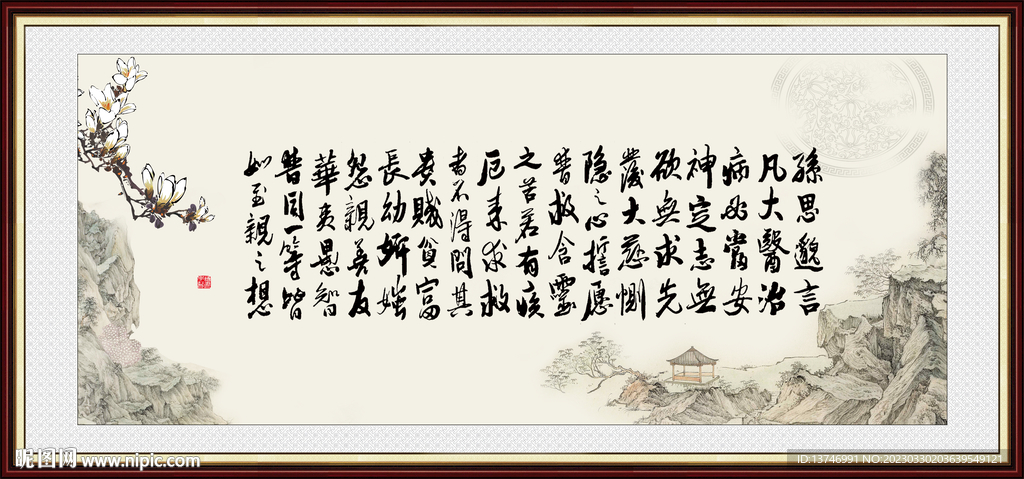 孫思邈言
凡大醫治
病必當安
神定志無
欲無求先
發大慈惻
隐之心誓愿
普救含靈
之苦若有疾
厄来求救
者不得問其
貴賤貧富
長幼妍媸
怨親善友
華夷愚智
普同一等皆
如至親之想
昵图网 www.nipic.com
ID:13746991 NO:20230330203639549121